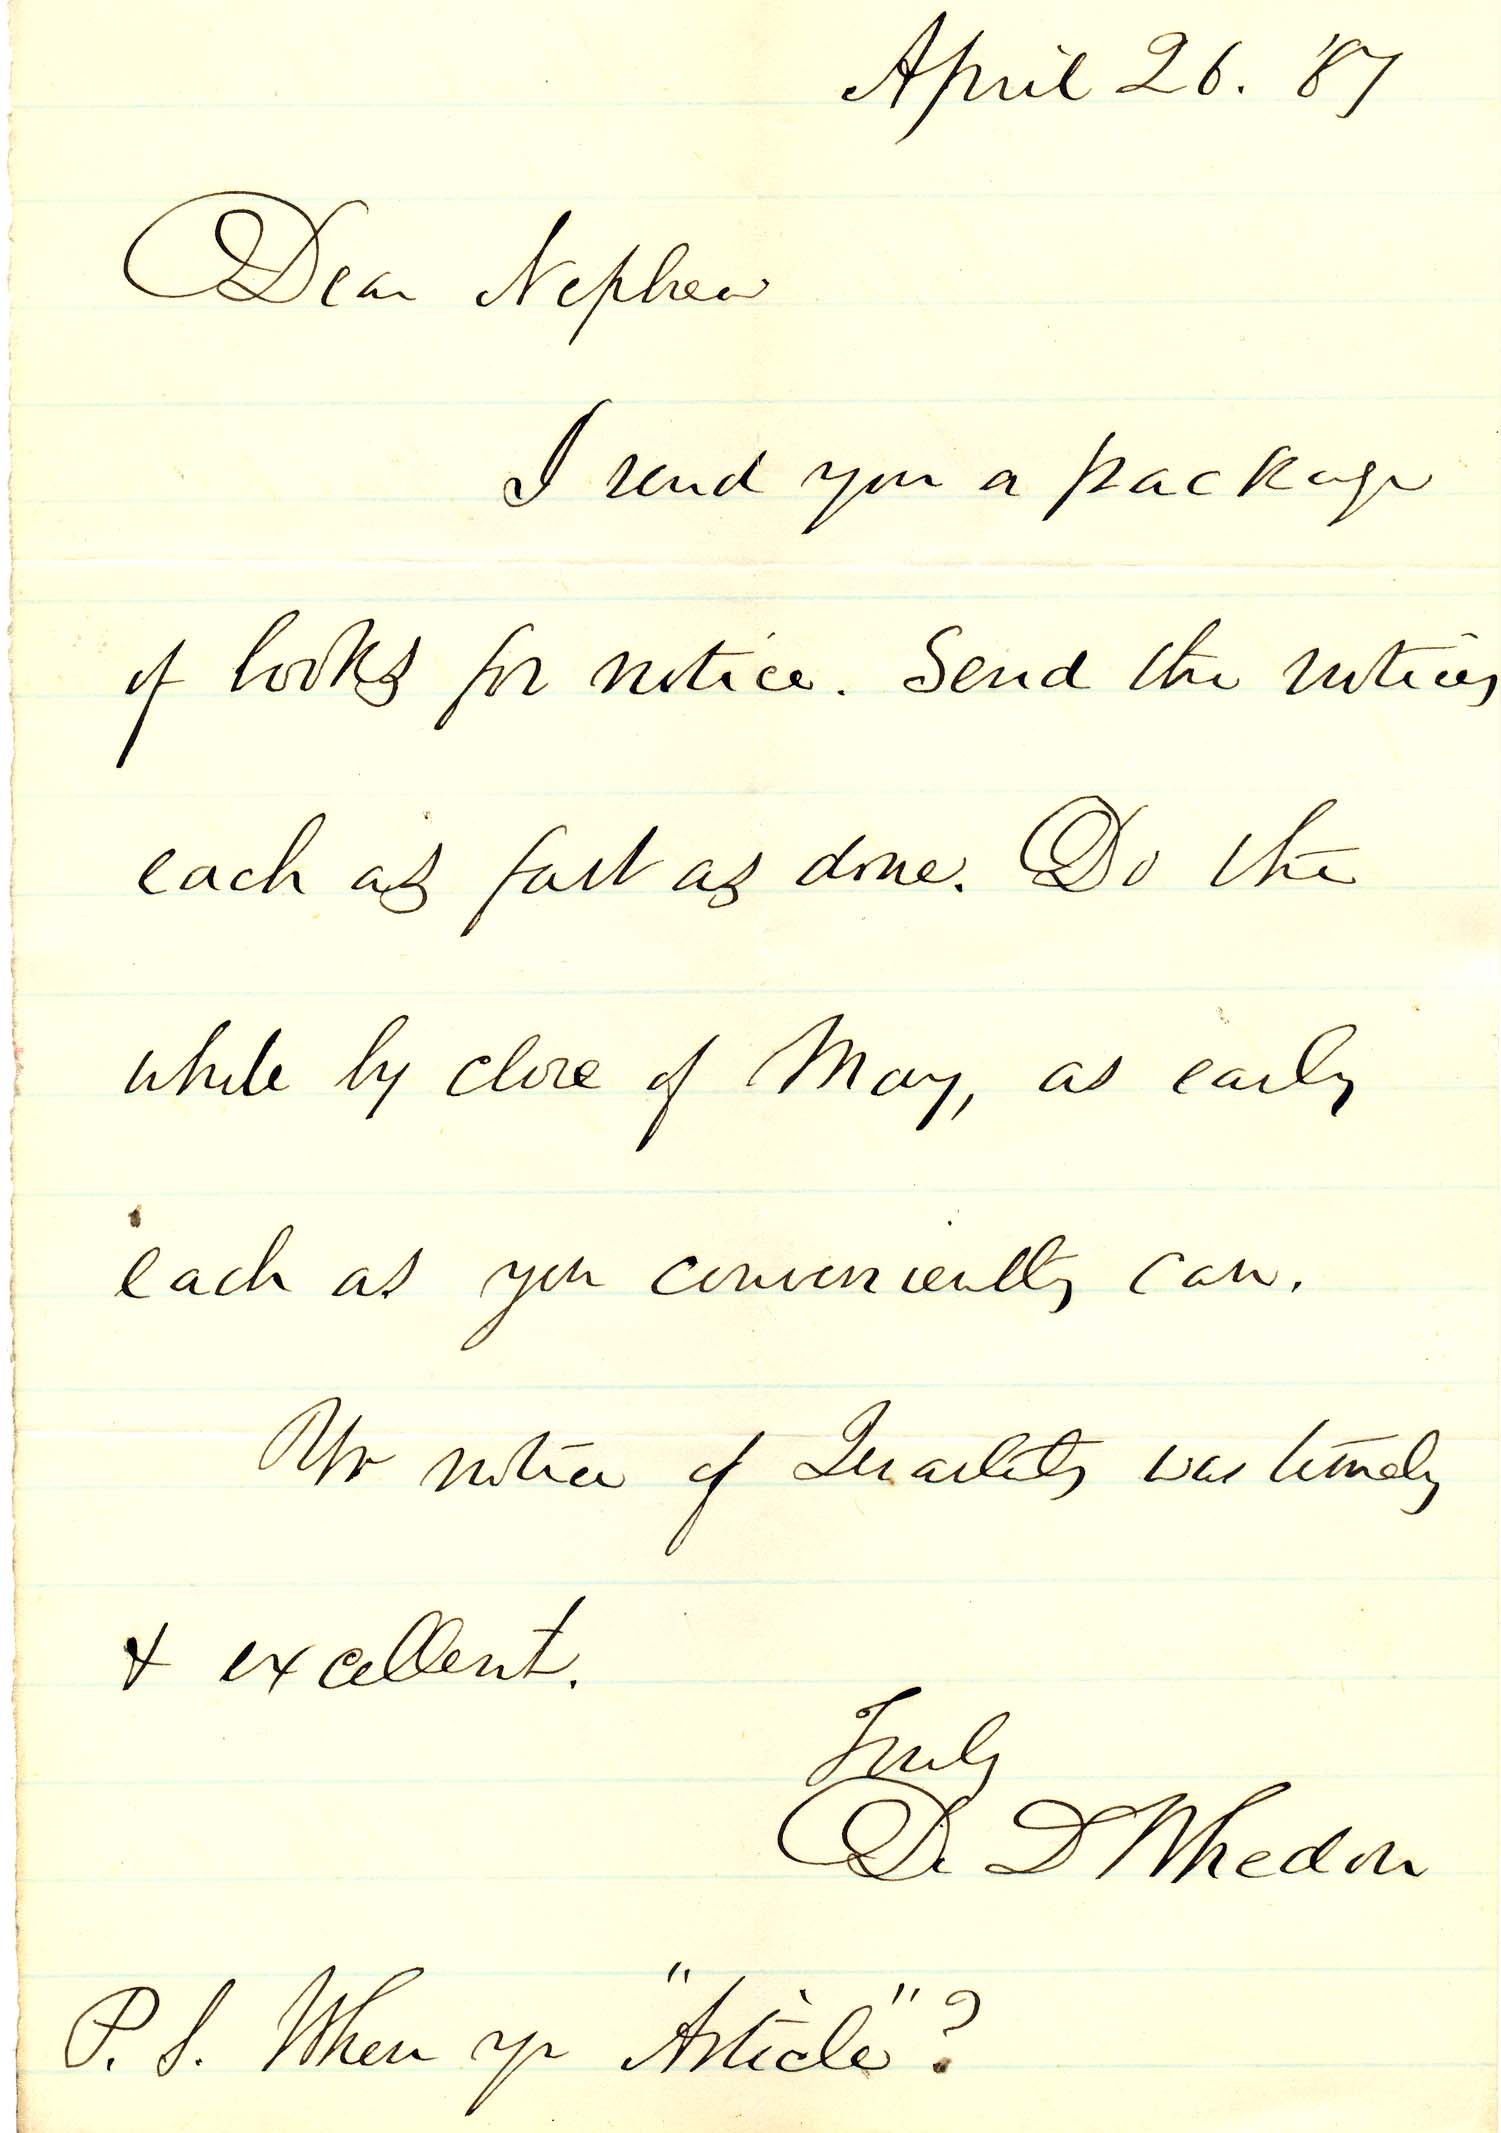 April 26. '87
Dear Nephew
I send you a package
of books for notice. Send the notices
each as fast as done. Do the
whole by close of May, as early
each as you conveniently can.
Yr notice of Quarterly was timely
& excellent.
Truly
D. D Whedon
P. S. When yr "Article"?